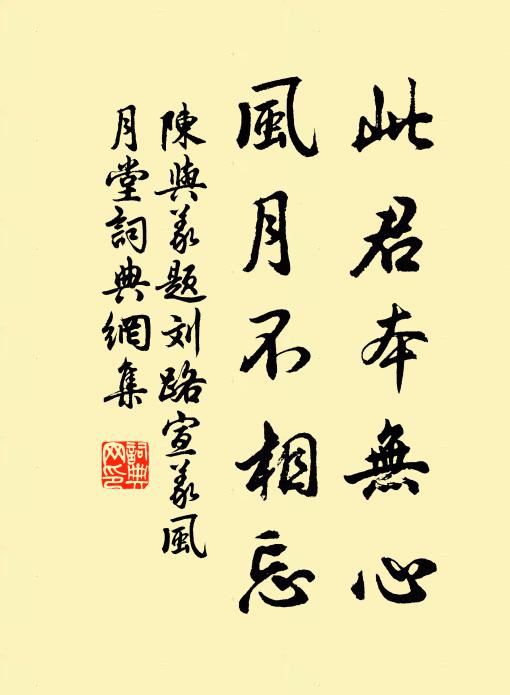 此君本無心
風月不相忘
陳與義題刘路宣義風
月堂詞典網集
詞典
网印